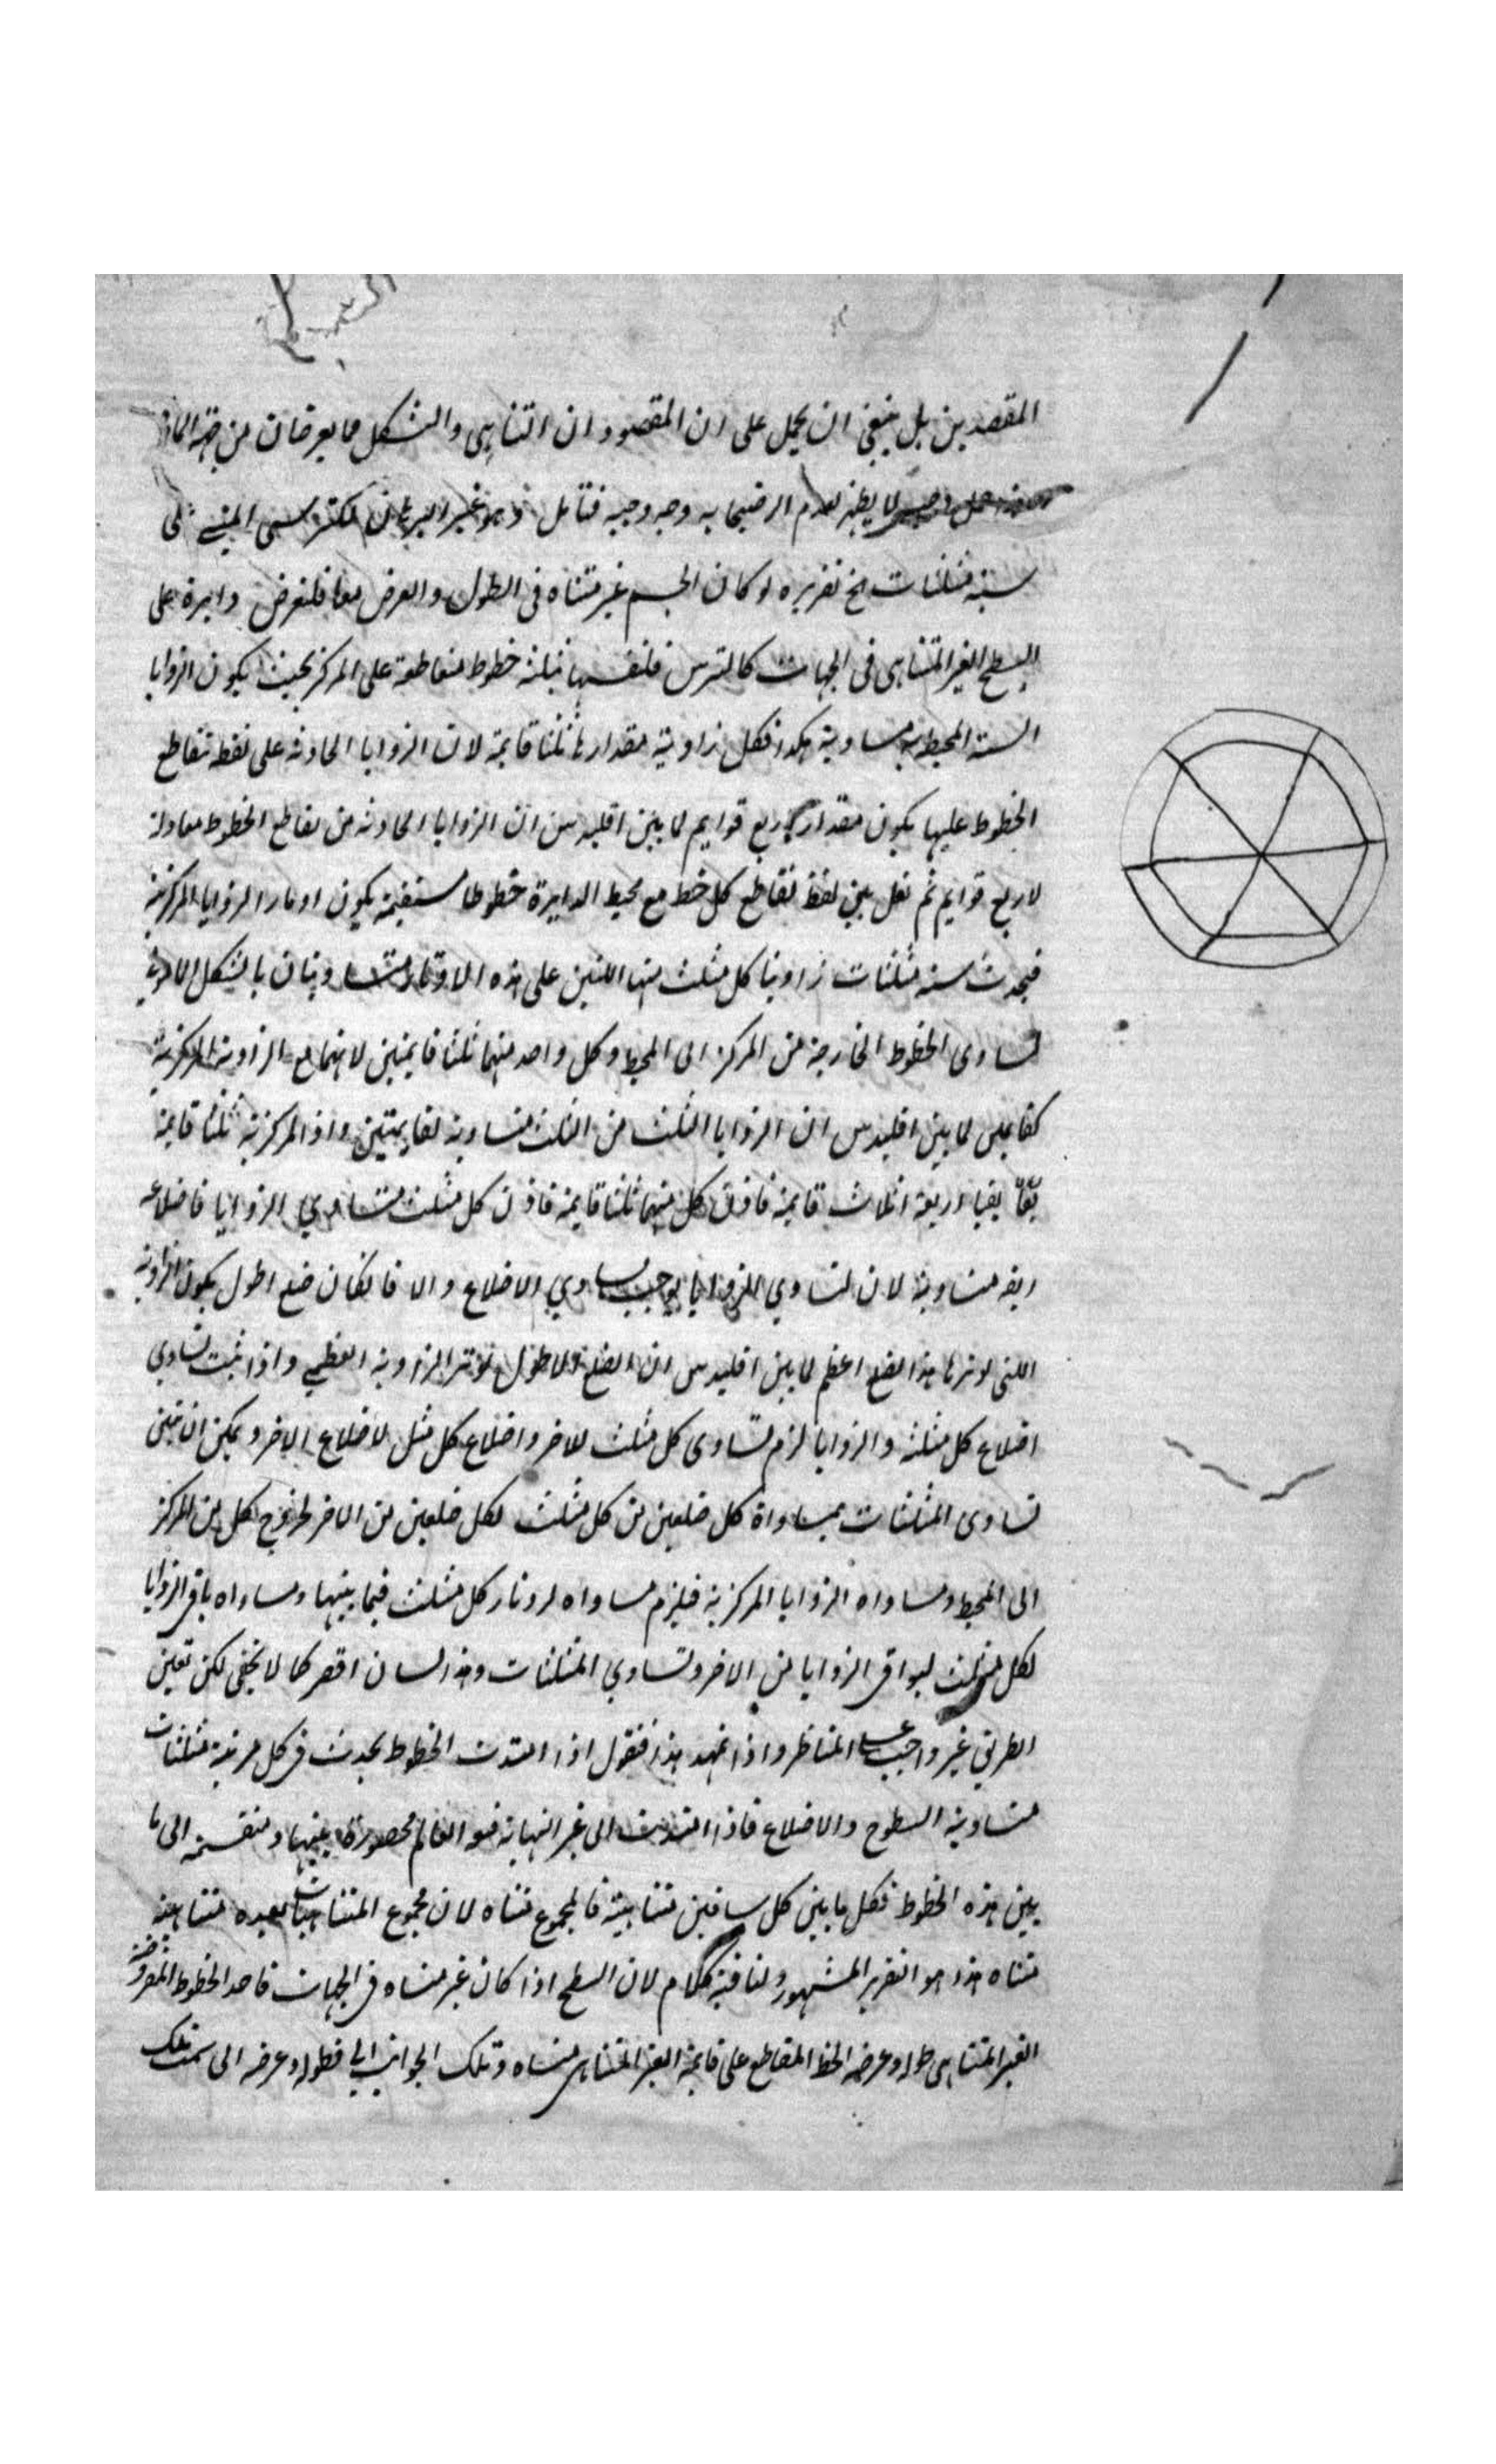 المقصدين بل ينبغي ان يحمل على ان المقصود ان التناهي والشكل مما يعرضان من جهة المادة
لا يظهر لعدم ارتضائه به وجه وجيه فتامل وهو غير البرهان الترسي المبني على
ستة مثلثات الخ تقريره لو كان الجسم غير متناه في الطول والعرض معا فلنفرض دايرة على
السطح الغير المتناهي في الجهات كالترس فلنقسمها بثلثة خطوط متقاطعة على المركز بحيث يكون الزوايا
الستة المحيطة به متساوية هكذا فكل زاوية مقدارها ثلثا قايمة لان الزوايا الحادثة على نقطة تقاطع
الخطوط عليها يكون مقدار اربع قوايم لما بين اقليدس ان الزوايا الحادثة من تقاطع الخطوط معادلة
لاربع قوايم ثم نصل بين نقط تقاطع كل خط مع محيط الدايرة خطوطا مستقيمة يكون اوتار الزوايا المركزية
فيحدث ستة مثلثات زاويتا كل مثلث منها اللتين على هذه الاوتار متساويتان بالشكل المادوني
لتساوى الخطوط الخارجة من المركز الى المحيط وكل واحد منهما ثلثا قايمتين لانهما مع الزاوية المركزية
كقايمتين لما بين اقليدس ان الزوايا الثلث من المثلث متساوية لقايمتين واذ المركزية ثلثا قايمة
بقيا اربعة اثلاث قايمة فاذن كل منهما ثلثا قايمة فاذن كل مثلث متساوي الزوايا فاضلاعه
ايضه متساوية لان تساوي الزوايا يوجب تساوي الاضلاع والا فالكان ضلع اطول يكون الزاوية
اللتي يوترها هذا الضلع اعظم لما بين اقليدس ان الضلع الاطول يوتر الزاوية العظمى واذا ثبت تساوي
اضلاع كل مثلثة والزوايا لزم تساوى كل مثلث للاخر واضلاع كل مثل لاضلاع الاخر ويمكن ان نبين
تساوى المثلثات بمساواة كل ضلعين من كل مثلث لكل ضلعين من الاخر لخروج كل من المركز
الى المحيط ومساواه الزوايا المركزية فيلزم مساواه اوتار كل مثلث فيما بينها ومساواه باقي الزوايا
لكل مثلث لبواقى الزوايا من الاخر وتساوي المثلثات وهذا لسان اقصر كما لا يخفى لكن تعين
الطريق غير واجب على المناظر واذا تمهد هذا فنقول اذا امتدت الخطوط يحدث في كل مرتبة مثلثات
متساوية السطوح والاضلاع فاذا امتدت الى غير النهاية فهو العالم محصورة بينها ومنقسمة الى ما
بين هذه الخطوط فكل ما بين كل ساقين متناهية فالمجموع متناه لان مجموع المتناهيات بعده متناهية
متناه هذا هو التقرير المشهور ولنا فيه كلام لان السطح اذا كان غير متناه في الجهات فاحد الخطوط المفروضة
الغير المتناهى طوله وعرضه الخط المقاطع على قايمة الغير المتناهى متناه وتلك الجوانب فطوله وعرضه الى سمت تلك